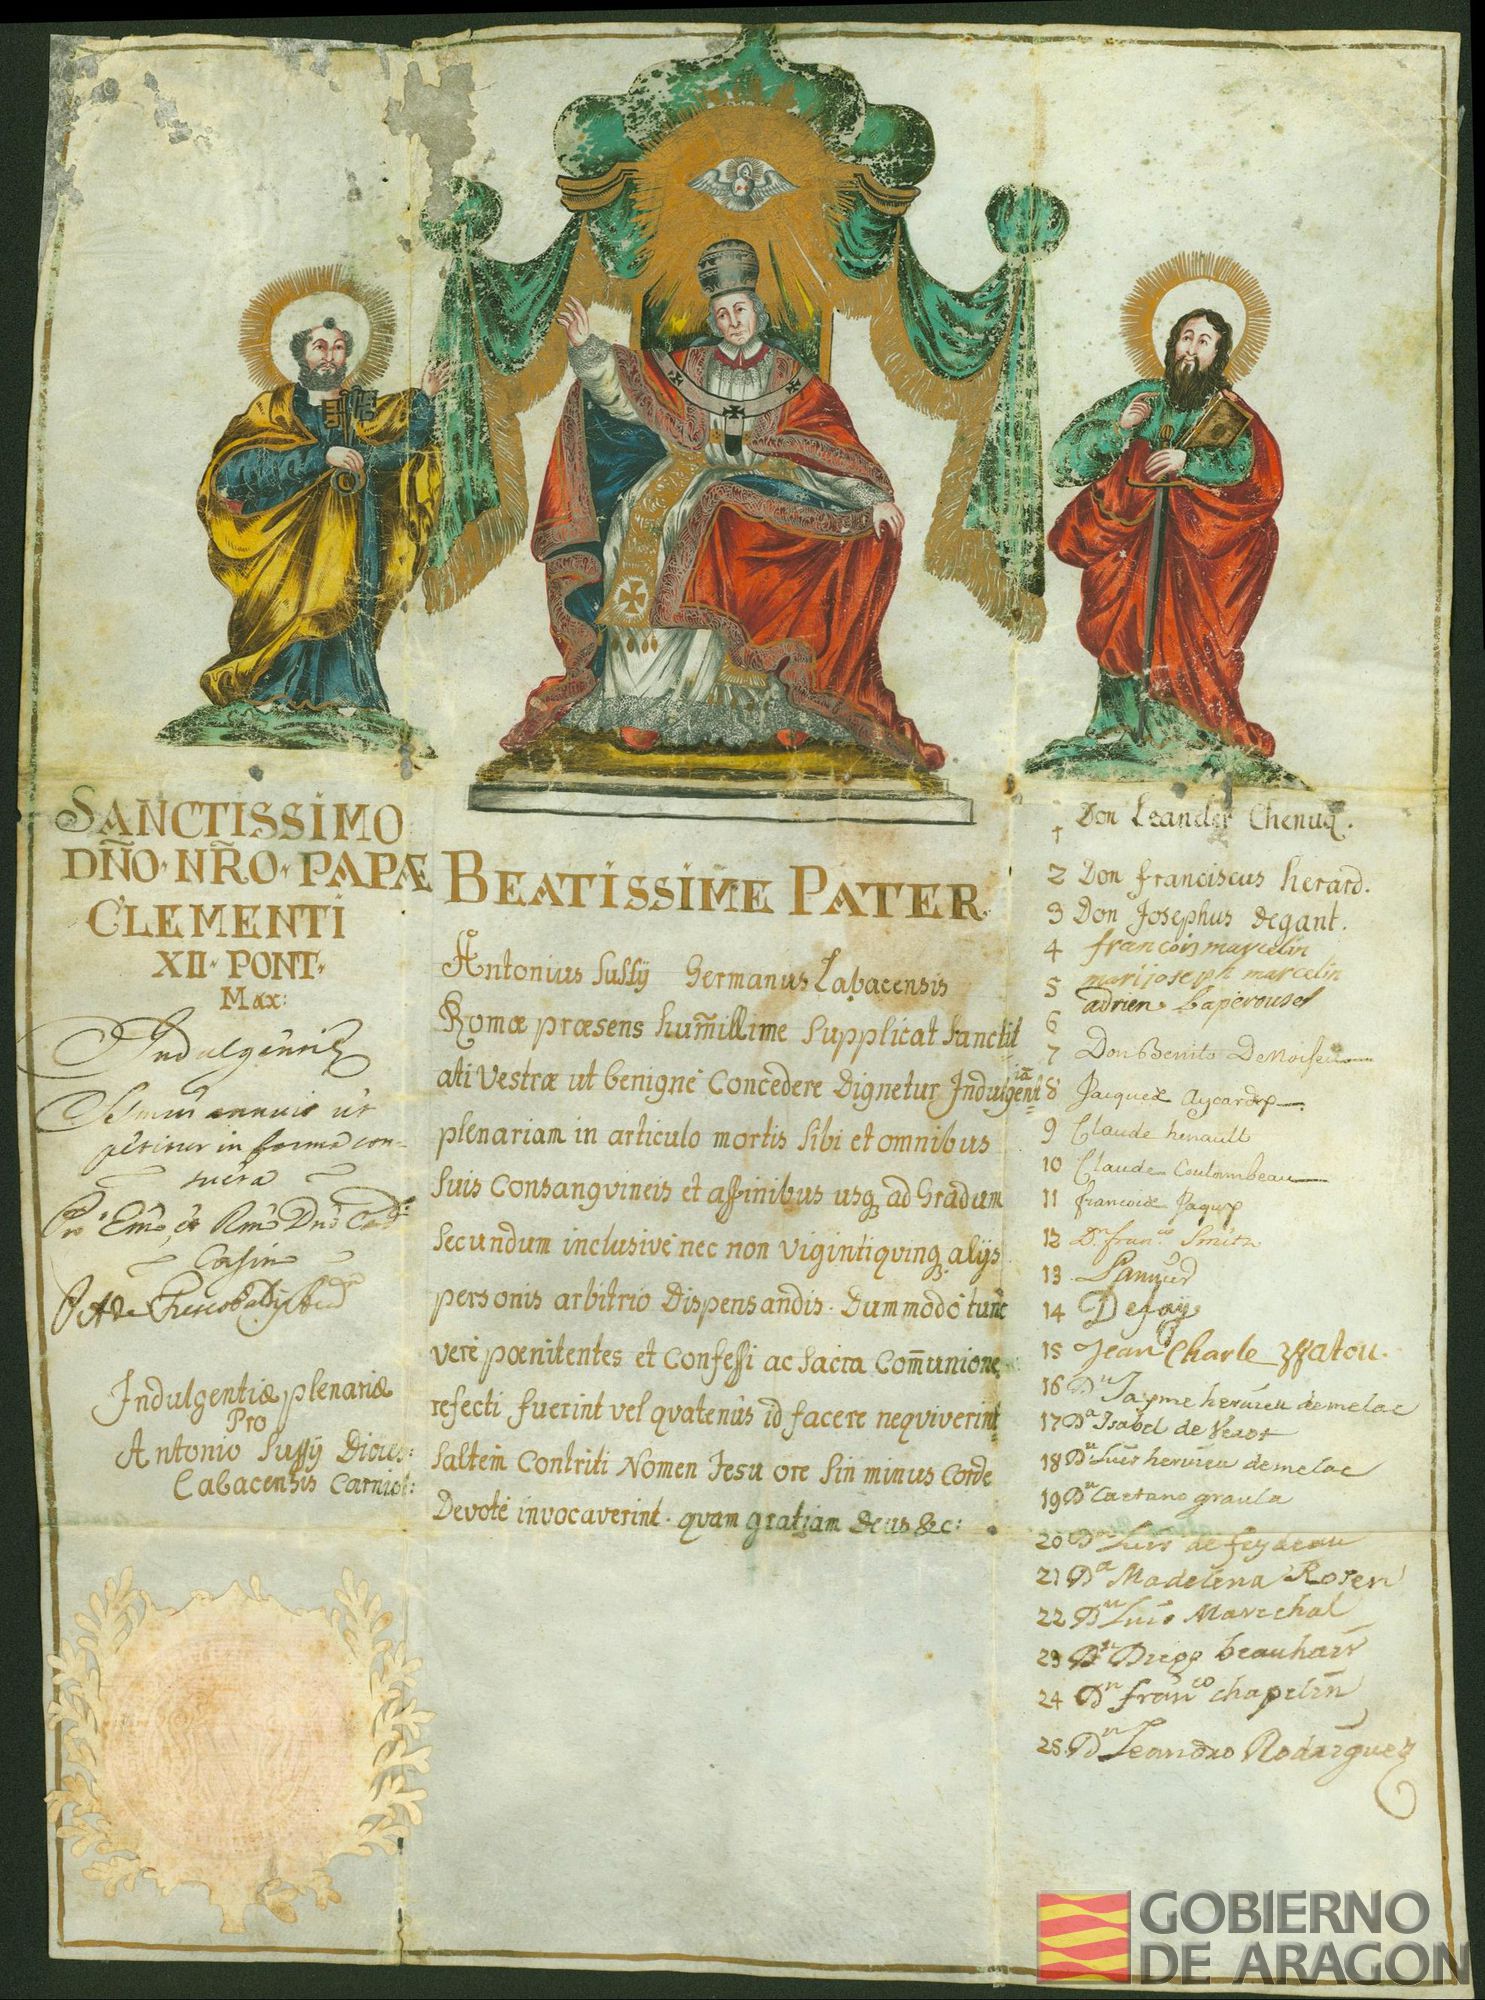 SANCTISSIMO
DÑO. NR̃O. PAPÆ
CLEMENTI
XII. PONT.
Max:
annuit ut
petitur in forma con-
sueta
Indulgentiæ plenariæ
Pro
Antonio Sussÿ Dioces:
Labacensis Carniol:
BEATISSIME PATER
Antonius Sussÿ Germanus Labacensis
Romæ præsens hum̃illime Supplicat Sanctit
ati Vestræ ut benigne Concedere Dignetur Indulgentiã
plenariam in articulo mortis Sibi et omnibus
Suis Consangvineis et affinibus usq ad Gradum
Secundum inclusive nec non Vigintiqvinq alijs
personis arbitrio Dispensandis. Dummodo tunc
vere pœnitentes et Confessi ac Sacra Com̃unione
refecti fuerint vel qvatenus id facere neqviverint
Saltem Contriti Nomen Iesu ore Sin minus Corde
Devote invocaverint. quam gratiam Deus &c:
1 Don Leander Chenuq.
2 Don franciscus herard.
3 Don Josephus degant.
4 francois marcelin
5 marijoseph marcelin
6 adrien Laperousel
7 Don Benito
8 Jacques
9 Claude henault
10 Claude Couloumbeau
11 francoise Jaqup
12 Dn. franco Smith
13
14 Defay
15 Jean Charle
16 Dn Jayme hervieu demelac
17 Da Isabel de
18 Dn Luis hervieu demelac
19 Dn Caetano graula
20 Dn Luis de feydeau
21 Da Madelena Rosen
22 Dn Luis Marechal
23 Dn Diego beauhair
24 Dn franco chapelin
25. Dn Leandro Rodriguez
GOBIERNO
DE ARAGON